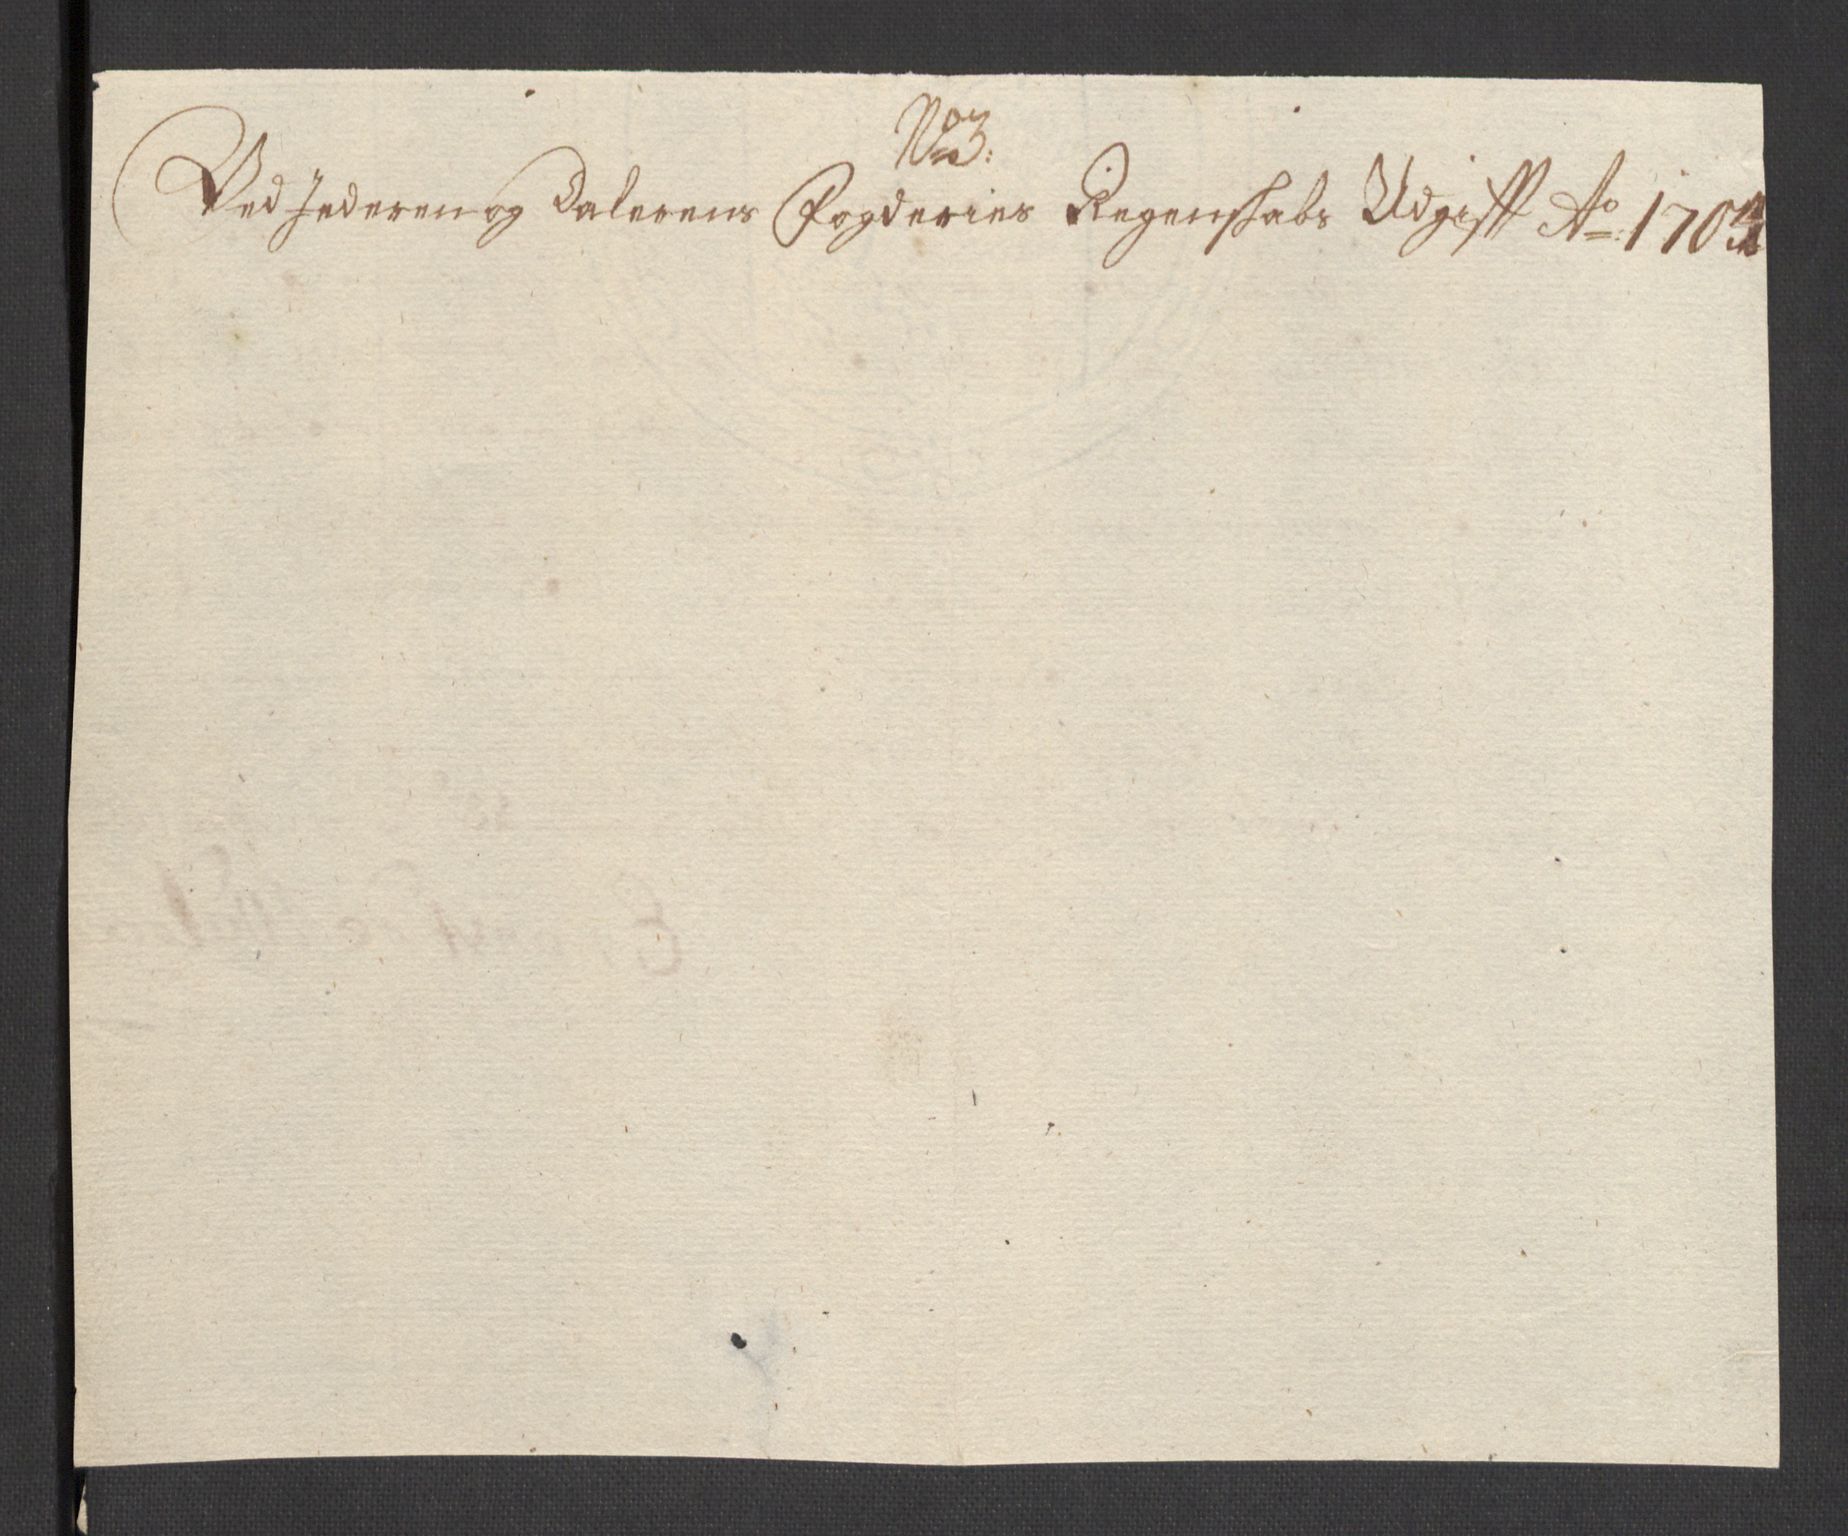 No 3:
Ved Jederen og Dalerens Fogderies Regenskabs Udgifft Ao: 1704